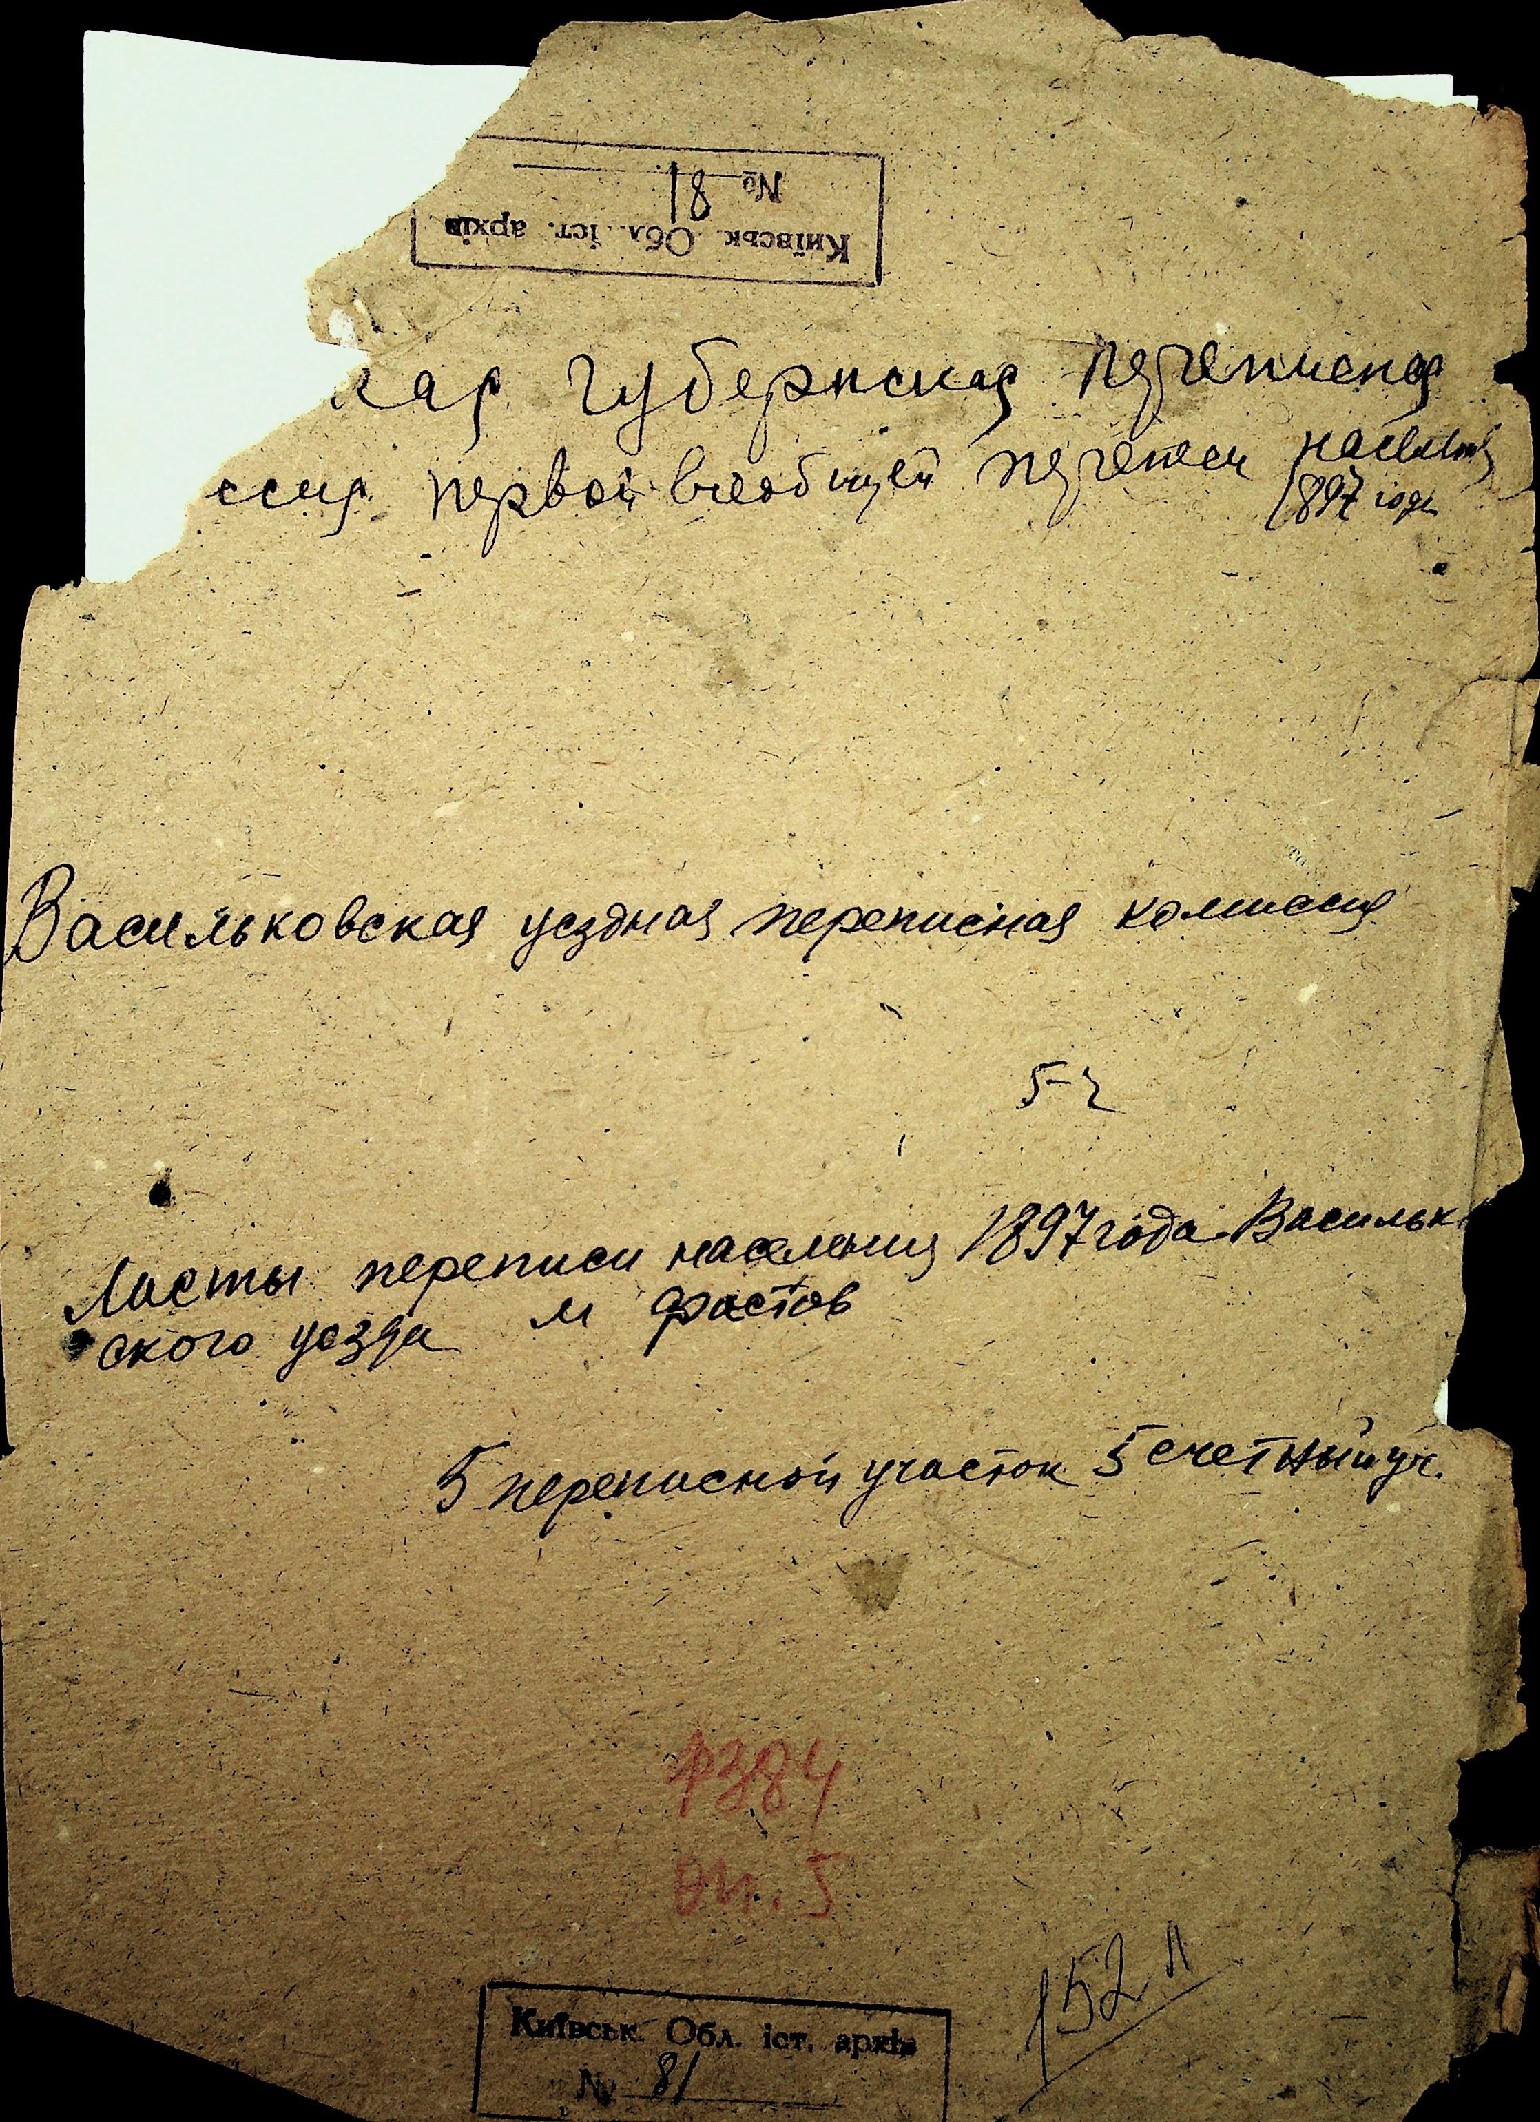 № 81
Київськ. Обл. іст. архів
кая губернская переписная
ссия первой всеобщей переписи населения
1897 года
Васильковская уездная переписная комиссия
5-2
Листы переписи населения 1897 года Васильков
ского уезда м Фастов
5 переписной участок 5 счетный уч.
Ф384
Оп. 5
152 л
Київськ. Обл. іст. архів
№ 81